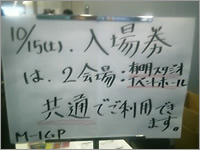 10/15(土). 入場券
は、2会場:有明スタジオ
イベントホール
共通でご利用でき
ます。
M-1GP